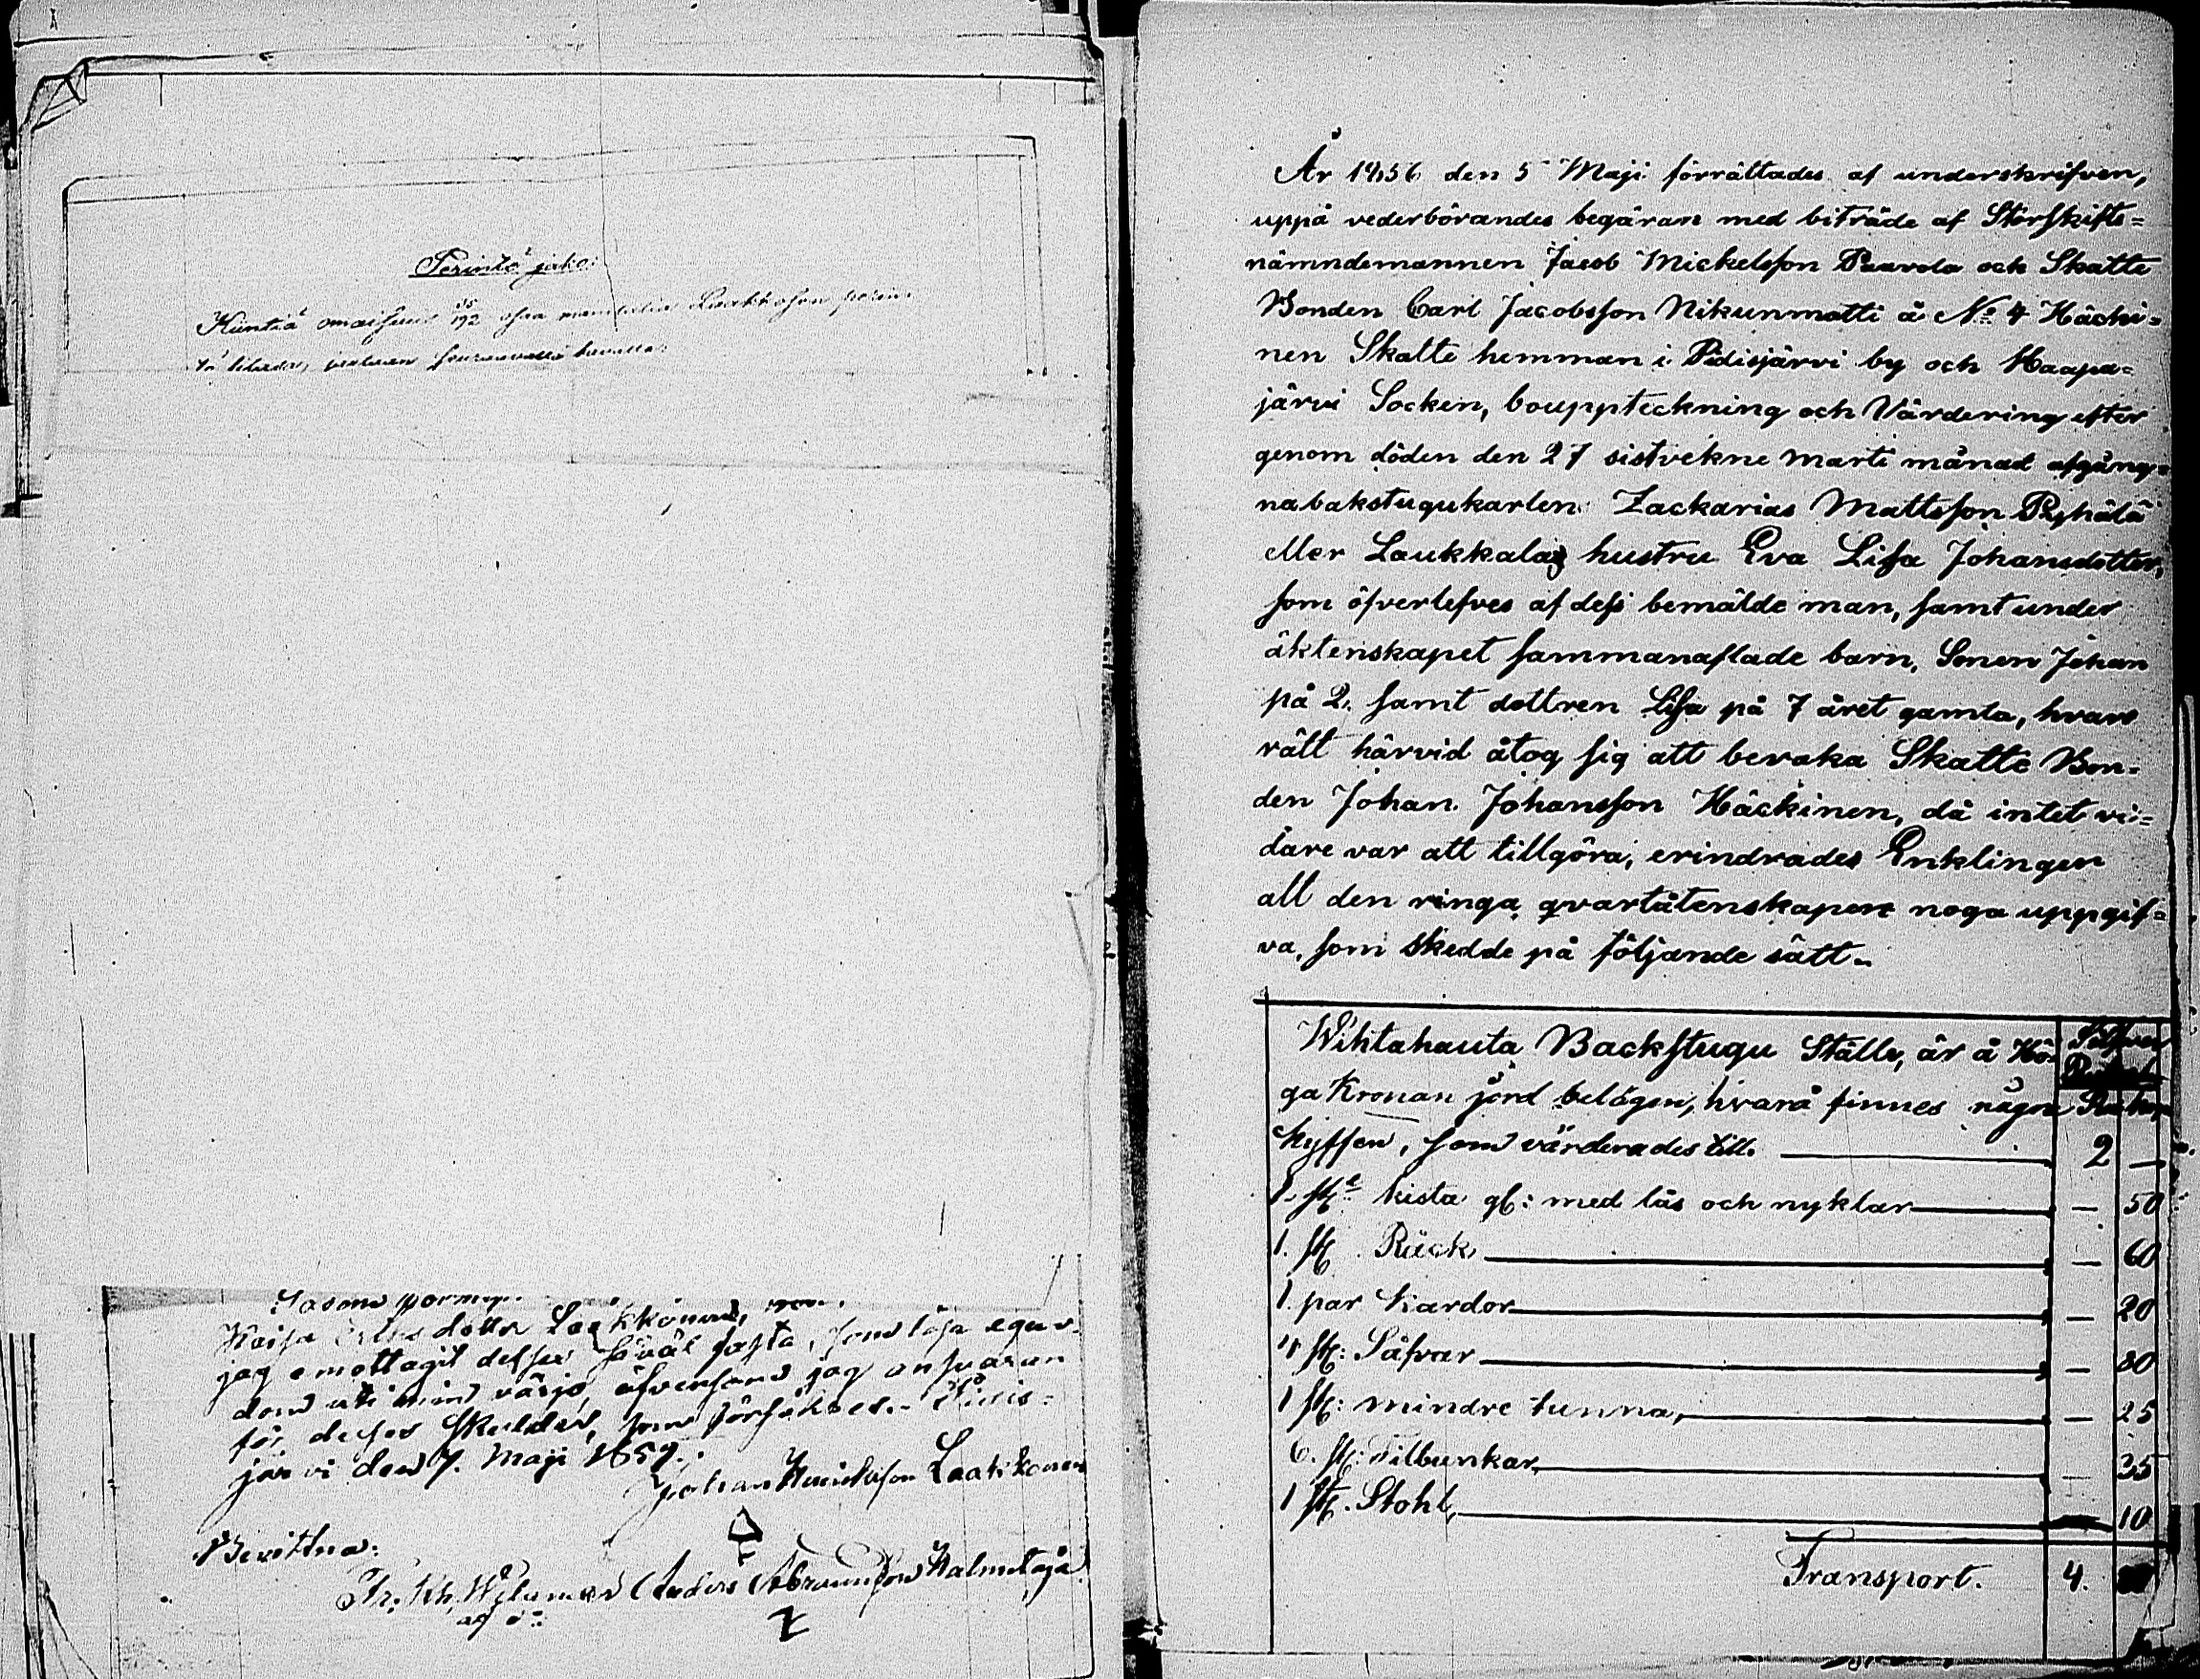 Perintö jako:
Kiinteä omaisuus 35/192 osaa manttalia Laakkosen perin-
tö tilasta, jaetaan seuraavalla tavalla:
Kaisa dotter Laakkonen,
jag emottagit desse såväl fasta, som lösa egen-
dom uti min värjo, äfvensom jag ansvarar
för desses skulder, som försäkras. Pidis-
järvi den 7. Maji 1859.
Johan Henriksson Laakkonen
Bevittna:
Fr. Kh. Anders Abramsson Kalmetoja
År 1856 den 5 Maji förrättades af underskrifven,
uppå vederbörandes begäran med biträde af Storskifts=
nämndemannen Jacob Mickelsson Paavola och Skatte
Bonden Carl Jacobsson Nikunmatti å No 4 Häcki=
nen Skatte hemman i Pidisjärvi by och Haapa=
järvi Socken, bouppteckning och Värdering efter
genom döden den 27 sistvekne marti månad afgång=
na bakstugukarlen Zackarias Mattsson Pyhälä
eller Laukkalas hustru Eva Lisa Johansdotter,
som öfverlefves af dess bemälde man, samt under
äktenskapet sammanaflade barn, Sonen Johan
på 2. samt dottren Lisa på 7 året gamla, hvars
rätt härvid åtog sig att bevaka Skatte Bon=
den Johan Johansson Häckinen, då intet vi=
dare var att tillgöra, erindrades Enklingen
all den ringa qvarlåtenskapen noga uppgif=
va, som skedde på följande sätt.
Wihtahauta Backstugu Ställe, är å Hö= Silfver
ga Kronan jord belägen, hvarå finnes någon Rub. kop.
Kyffen, som värderades till 2 —
1. st. kista gl: med lås och nyklar — 50
1. st. Räck — 60
1. par Kardor — 20
4 st: Såfvar — 80
1 st: mindre tunna, — 25
6. st: Filbunkar, — 35
1 st. Stohl, 10
Transport. 4.